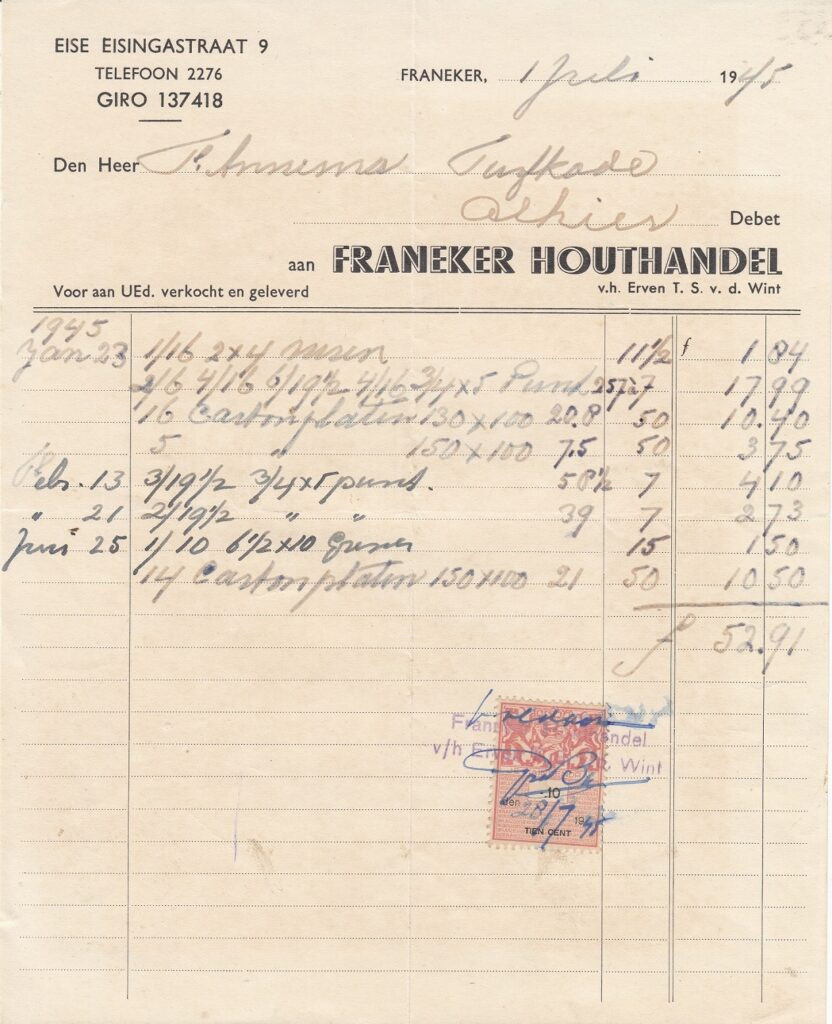 EISE EISINGASTRAAT 9
TELEFOON 2276
GIRO 137418
FRANEKER, 1 Juli 1945
Den Heer P. Annema Turfkade
Alhier Debet
aan FRANEKER HOUTHANDEL
v.h. Erven T. S. v. d. Wint
Voor aan UEd. verkocht en geleverd
1945
Jan 23 1/16 2x4 11 1/2 f 1 84
2/6 4/16 6/19 1/2 4/16 3/4 x 5 Punt 257 à 7 17 99
16 Cartonplaten 130 x 100 20.8 50 10.40
5 " 150 x 100 7.5 50 3 75
Febr. 13 3/19 1/2 3/4 x 5 punt. 58 1/2 7 4 10
" 21 2/19 1/2 " " 39 7 2 73
Juni 25 1/10 6 1/2 x 10 15 1 50
14 Cartonplaten 150 x 100 21 50 10 50
f 52.91
Voldaan
v/h Wint
10
den 28/7 1945
TIEN CENT